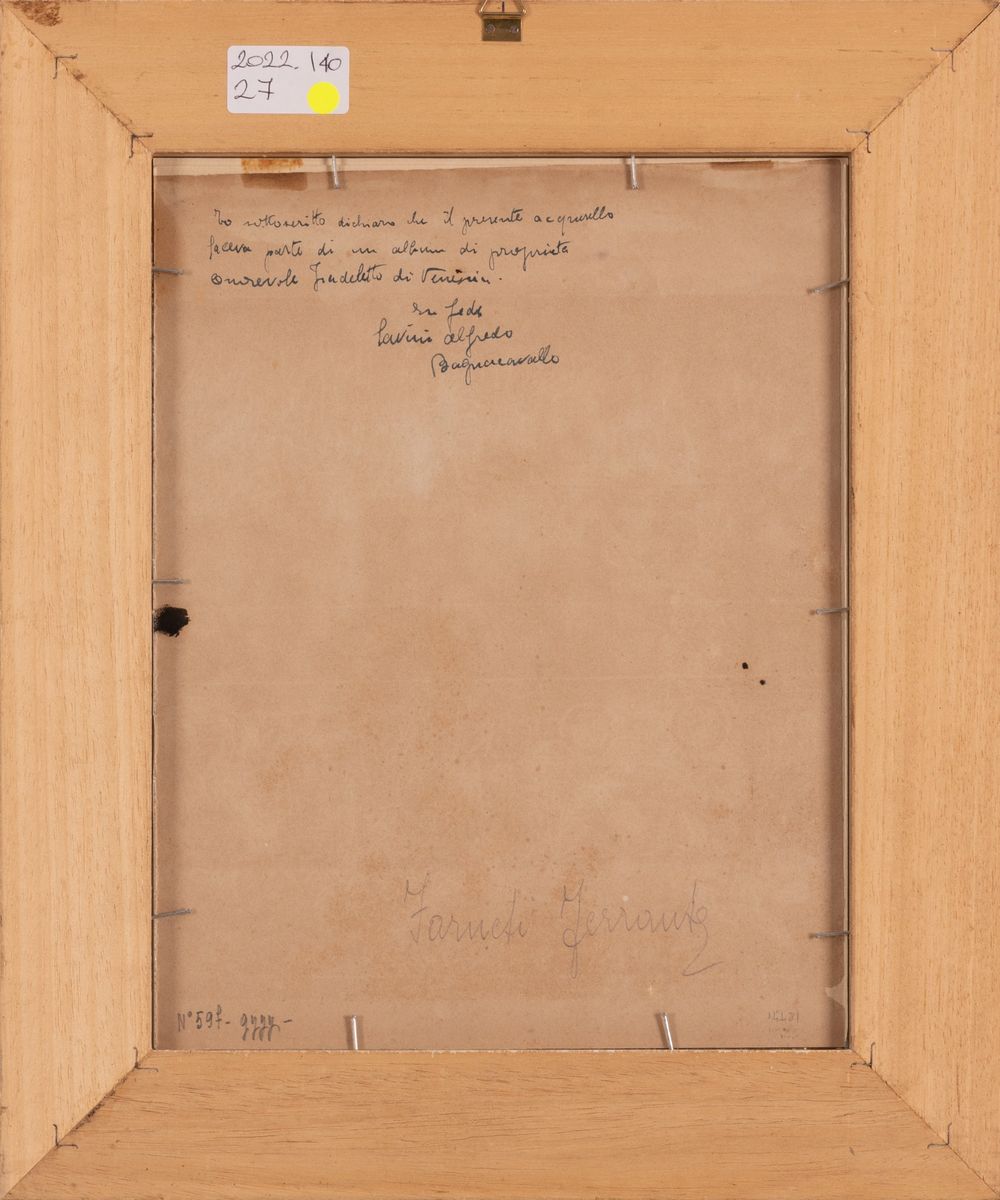 2022. 140
27
Io sottoscritto dichiaro che il presente acquarello
faceva parte di un album di proprietà
Onorevole Fradeletto di Venezia.
In fede
Savini Alfredo
Bagnacavallo
Farneti Ferrante
N° 597-